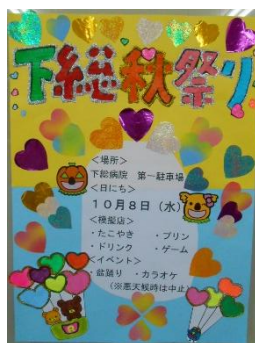 下総秋祭り
＜場所＞
下総病院　第一駐車場
＜日にち＞
１０月８日（水）
＜模擬店＞
・たこやき　・プリン
・ドリンク　・ゲーム
＜イベント＞
・盆踊り　・カラオケ
（※悪天候時は中止）